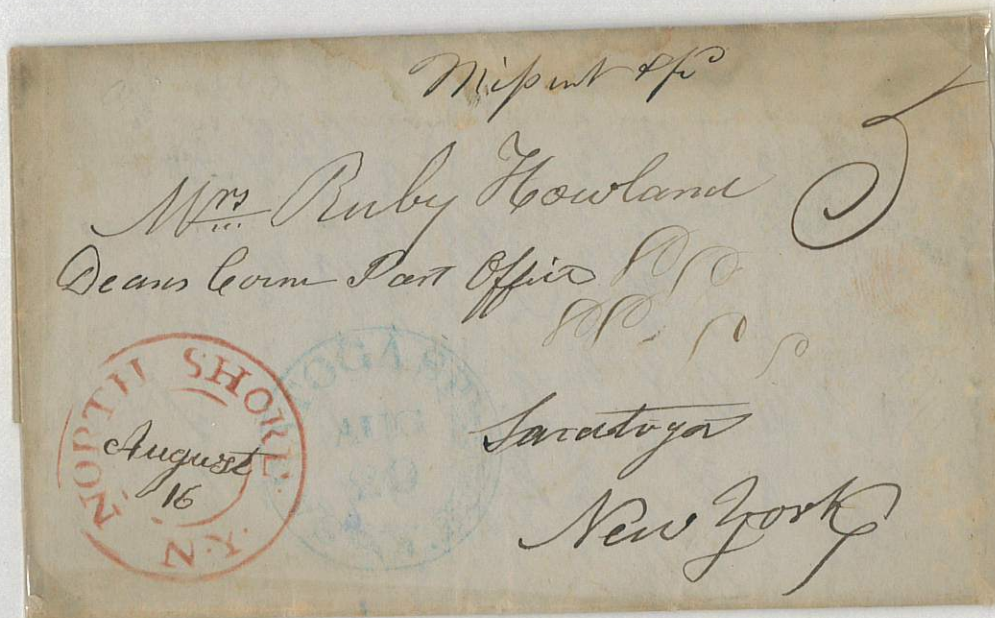 Missent & fd
5
Mrs Ruby Howland
Deans Corner Post Office
Saratoga
New York
NORTH SHORE
August
16
N.Y.